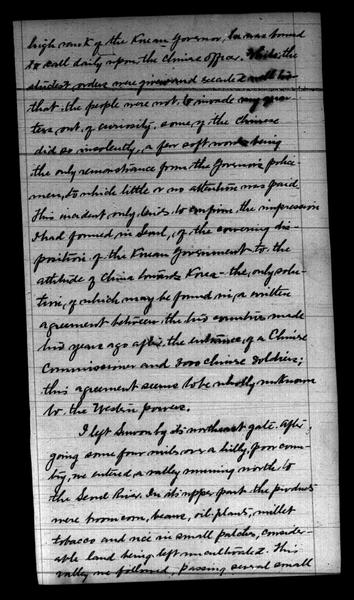 high rank of the Korean Governor, he was bound
to call daily upon the Chinese officer. While the
strictest orders were given and executed
that the people were not to invade my quar-
ters out of curiosity, some of the Chinese
did so insolently, a few soft words being
the only remonstrance from the Governor's police-
men, to which little or no attention was paid.
This incident only tends to confirm the impression
I had formed in Seoul, of the cowering dis-
position of the Korean Government to the
attitude of China towards Korea - the only solu-
tion of which may be found in a written
agreement between the two countries made
two years ago after the entrance of a Chinese
Commissioner and 3000 Chinese soldiers;
this agreement seems to be wholly unknown
to the Western powers.
I left Suwon by its northeast gate. After
going some four miles over a hilly, poor coun-
try, we entered a valley running north to
the Seoul River. In its upper part the products
were broom corn, beans, oil-plants, millet
tobacco and rice in small patches, consider-
able land being left uncultivated. This
valley we followed, passing several small